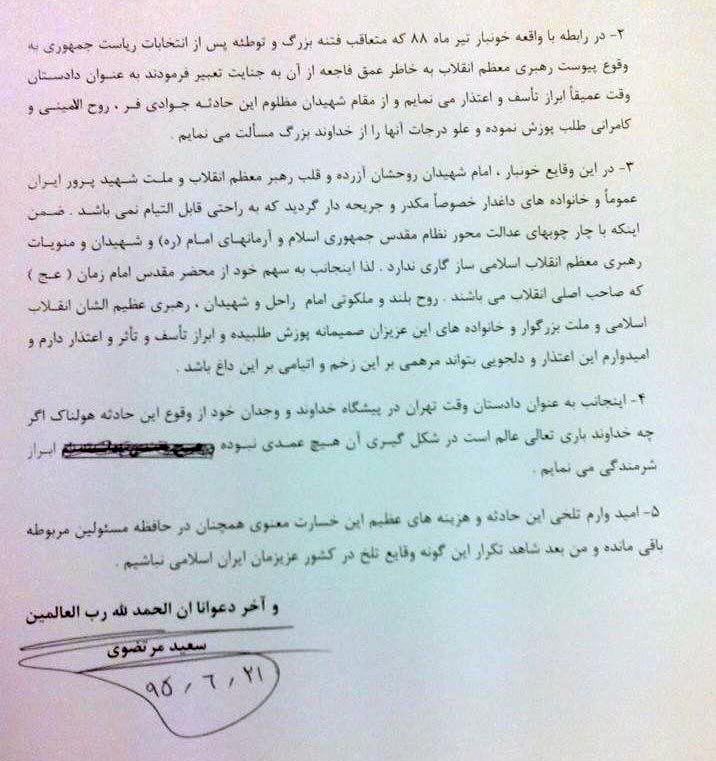 ۲- در رابطه با واقعه خونبار تیر ماه ۸۸ که متعاقب فتنه بزرگ و توطئه پس از انتخابات ریاست جمهوری به
وقوع پیوست رهبری معظم انقلاب به خاطر عمق فاجعه از آن به جنایت تعبیر فرمودند به عنوان دادستان
وقت عمیقاً ابراز تأسف و اعتذار می نمایم و از مقام شهیدان مظلوم این حادثه جوادی فر ، روح الامینی و
کامرانی طلب پوزش نموده و علو درجات آنها را از خداوند بزرگ مسألت می نمایم .
۳- در این وقایع خونبار ، امام شهیدان روحشان آزرده و قلب رهبر معظم انقلاب و ملت شهید پرور ایران
عموماً و خانواده های داغدار خصوصاً مکدر و جریحه دار گردید که به راحتی قابل التیام نمی باشد . ضمن
اینکه با چار چوبهای عدالت محور نظام مقدس جمهوری اسلام و آرمانهای امام (ره) و شهیدان و منویات
رهبری معظم انقلاب اسلامی ساز گاری ندارد . لذا اینجانب به سهم خود از محضر مقدس امام زمان ( عج )
که صاحب اصلی انقلاب می باشند . روح بلند و ملکوتی امام راحل و شهیدان ، رهبری عظیم الشان انقلاب
اسلامی و ملت بزرگوار و خانواده های این عزیزان صمیمانه پوزش طلبیده و ابراز تأسف و تأثر و اعتذار دارم و
امیدوارم این اعتذار و دلجویی بتواند مرهمی بر این زخم و اتیامی بر این داغ باشد .
۴- اینجانب به عنوان دادستان وقت تهران در پیشگاه خداوند و وجدان خود از وقوع این حادثه هولناک اگر
چه خداوند باری تعالی عالم است در شکل گیری آن هیچ عمدی نبوده ابراز
شرمندگی می نمایم .
۵- امید وارم تلخی این حادثه و هزینه های عظیم این خسارت معنوی همچنان در حافظه مسئولین مربوطه
باقی مانده و من بعد شاهد تکرار این گونه وقایع تلخ در کشور عزیزمان ایران اسلامی نباشیم .
و آخر دعوانا ان الحمد لله رب العالمین
سعید مرتضوی
۹۵٫۶٫۲۱